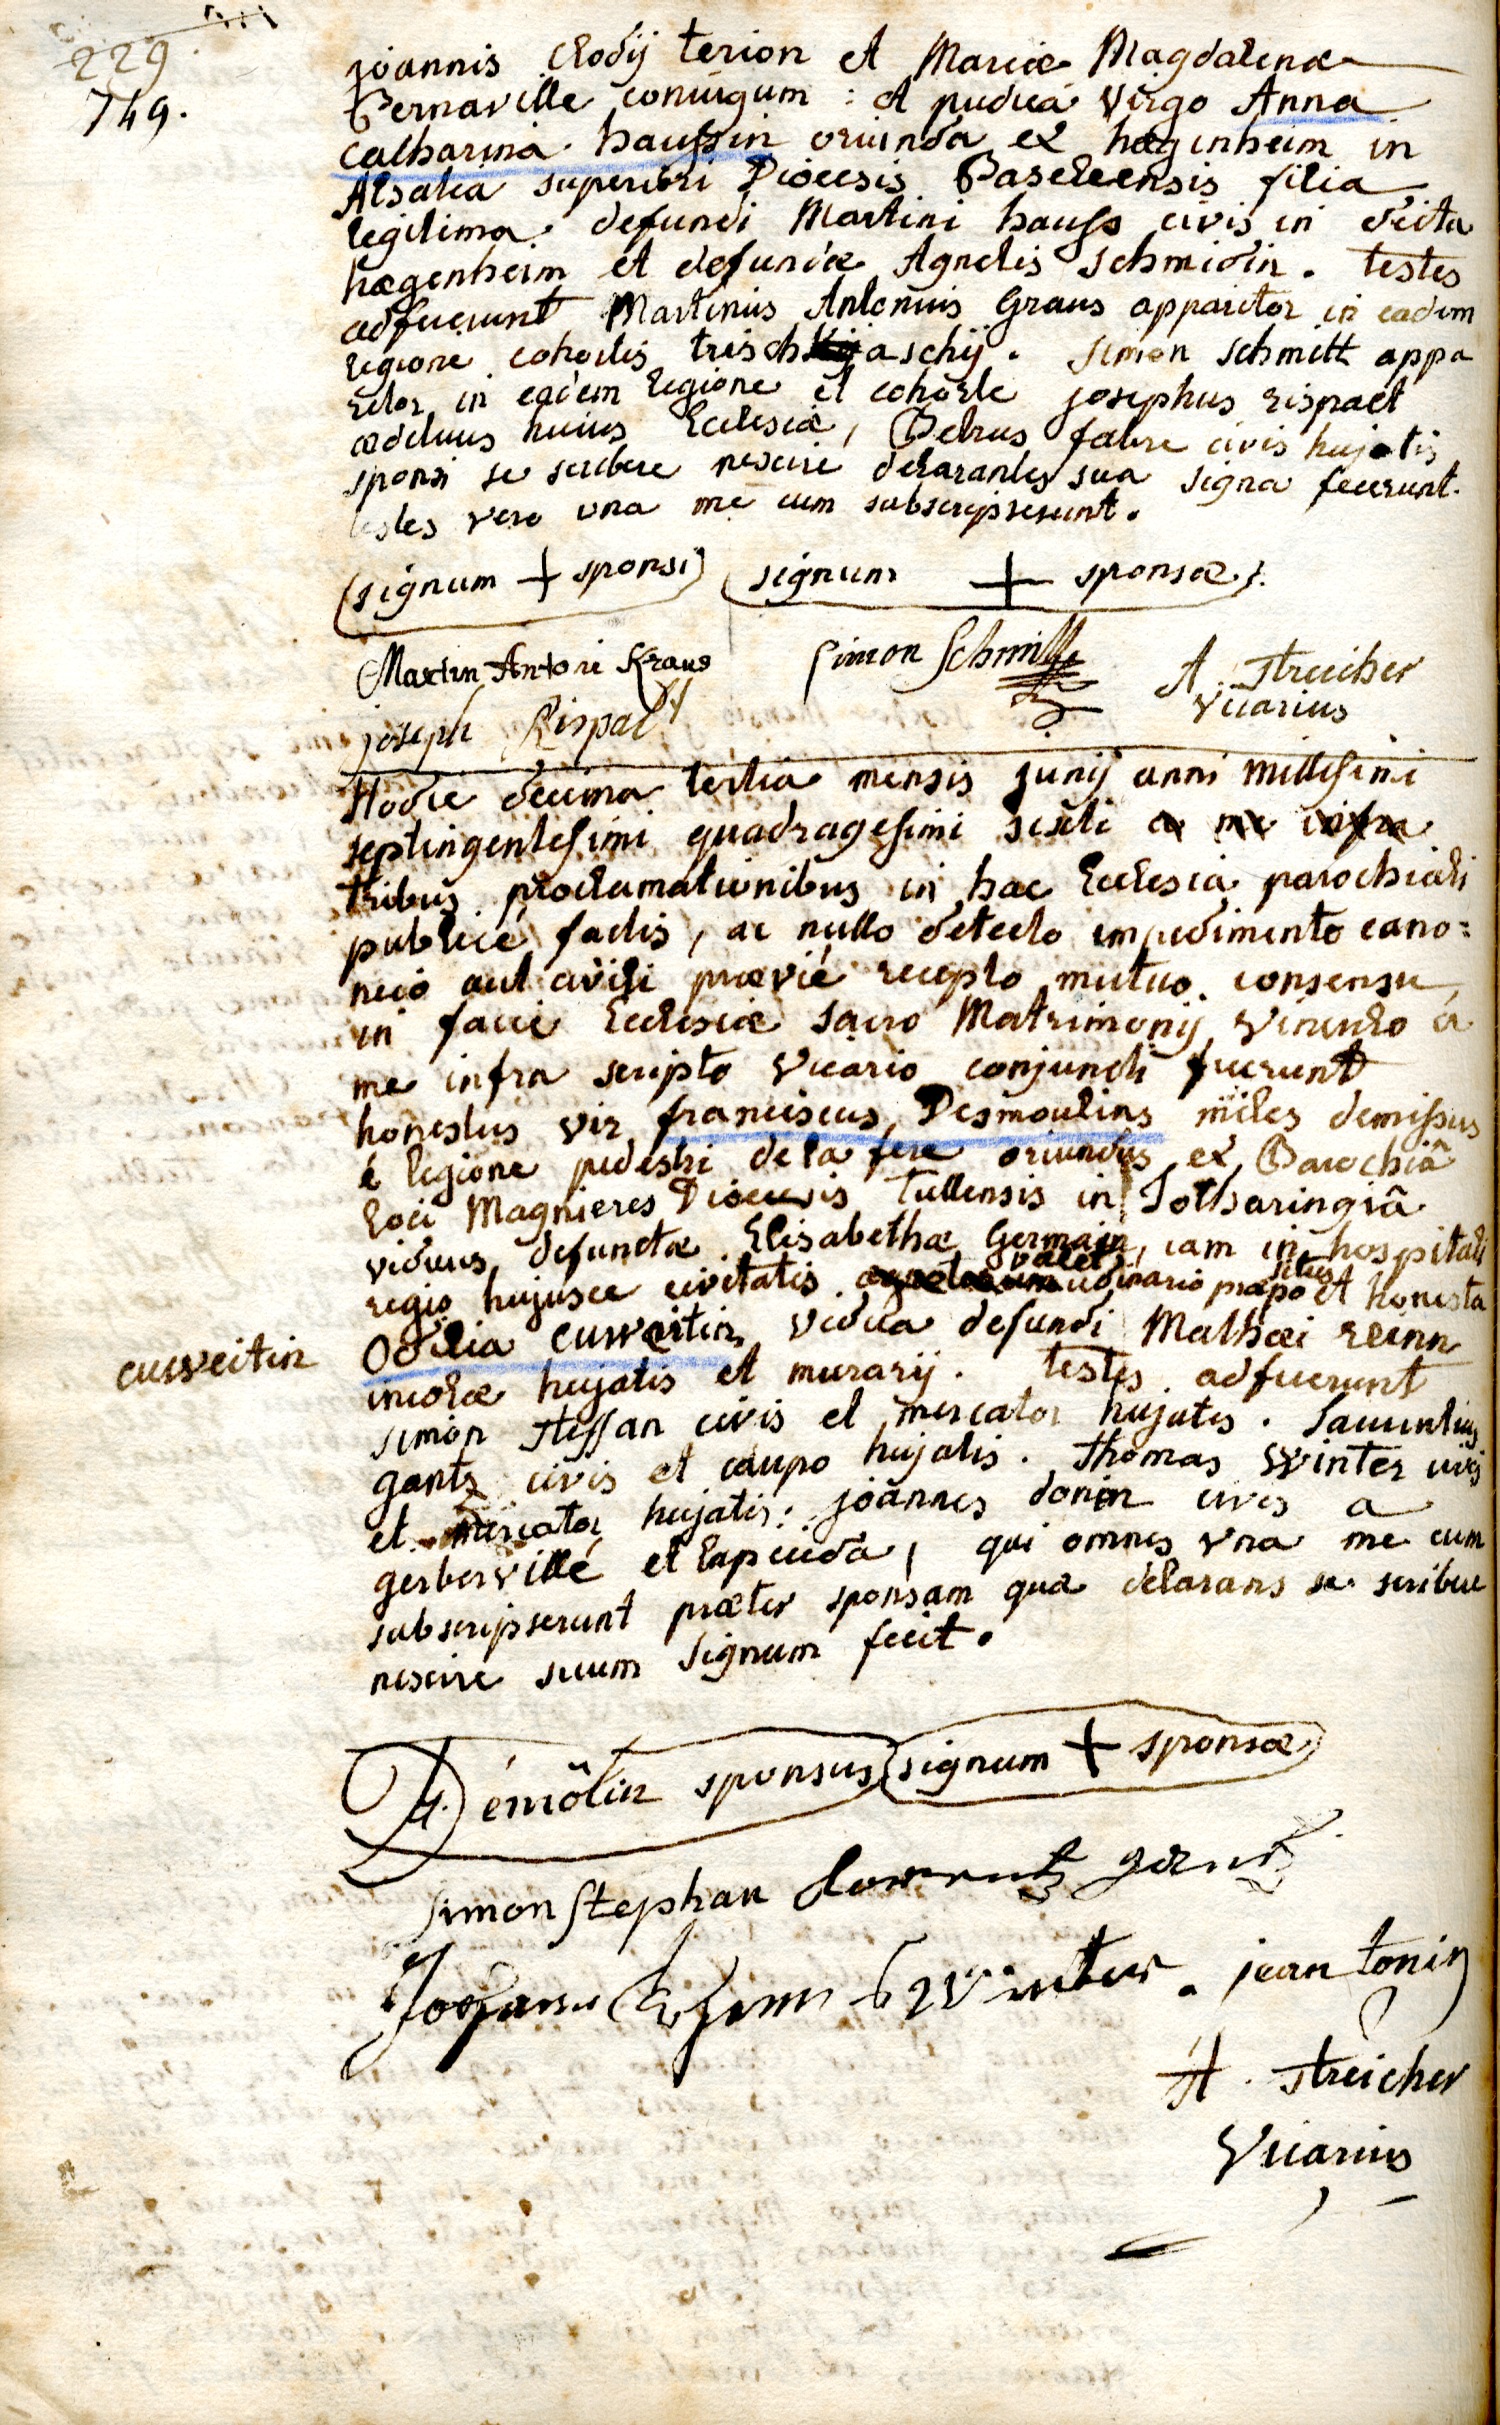 229.
749.
joannis Clodij terion et Mariæ Magdalenæ
Bernaville coniugum : et pudica virgo Anna
Catharina haussin oriunda ex hæginheim in
Alsatia superiori Diœcesis Basileensis filia
legitima defuncti Martini hauss civis in dicta
hægenheim et defunctæ Agnetis schmidin. testes
adfuerunt Martinus Antonius Graus apparitor in eadem
legione cohortis trischaschij. simon schmitt appa
ritor in eadem legione et cohorte josephus rispact
ædituus huius Ecclesiæ, Petrus fabre civis hujatis
sponsi se scribere nescire declarantes sua signa fecerunt.
testes vero una me cum subscripserunt.
(signum + sponsi) (signum + sponsæ).
Martin Antoni Kraus Simon Schmitt A. Streicher
joseph Rispact Vicarius
Hodie decima tertia mensis junij anni millesimi
septingentesimi quadragesimi sexti a me infra
tribus proclamationibus in hac Ecclesia parochiali
publicé factis, ac nullo detecto impedimento cano=
nico aut civili prævié recepto mutuo consensu
in facie Ecclesiæ sacro Matrimonij Vinculo a
me infra scripto Vicario conjuncti fuerunt
honestus vir franciscus Desmoulins miles demissus
é legione pedestri de la fere oriundus ex Parochiâ
loci Magnieres Diœcesis tullensis in Lotharingiâ
viduus defunctæ Elisabethæ Germain, iam in hospitali
regio hujusce civitatis valet udinario præpositus et honesta
cusveitin
Odilia Cusveitin vidua defuncti Mathæi reinn
incolæ hujatis et murarij. testes adfuerunt
simon steffan civis et mercator hujatis. Laurentius
gantz civis et caupo hujatis. Thomas Winter civis
et mercator hujatis: joannes donin civis a
gerbervillé et lapicida, qui omnes una me cum
subscripserunt præter sponsam quæ declarans se scribere
nescire suum signum fecit.
Démôlin sponsus signum + sponsæ
simon Stephan Lorentz gantz
Johann winter. jean tonin
A. Streicher
Vicarius